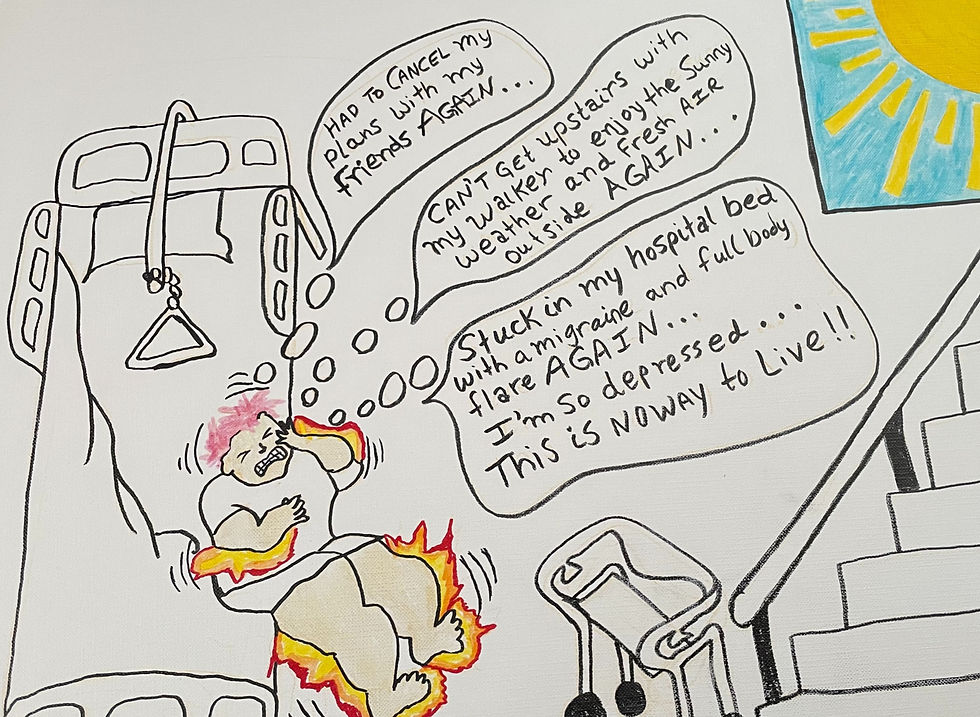 HAD TO CANCEL my
plans with my
friends AGAIN...
CAN'T GET upstairs with
my walker to enjoy the Sunny
weather and fresh AIR
outside AGAIN...
Stuck in my hospital bed
with a migraine and full body
flare AGAIN...
I'm so depressed...
This is NOWAY to Live!!